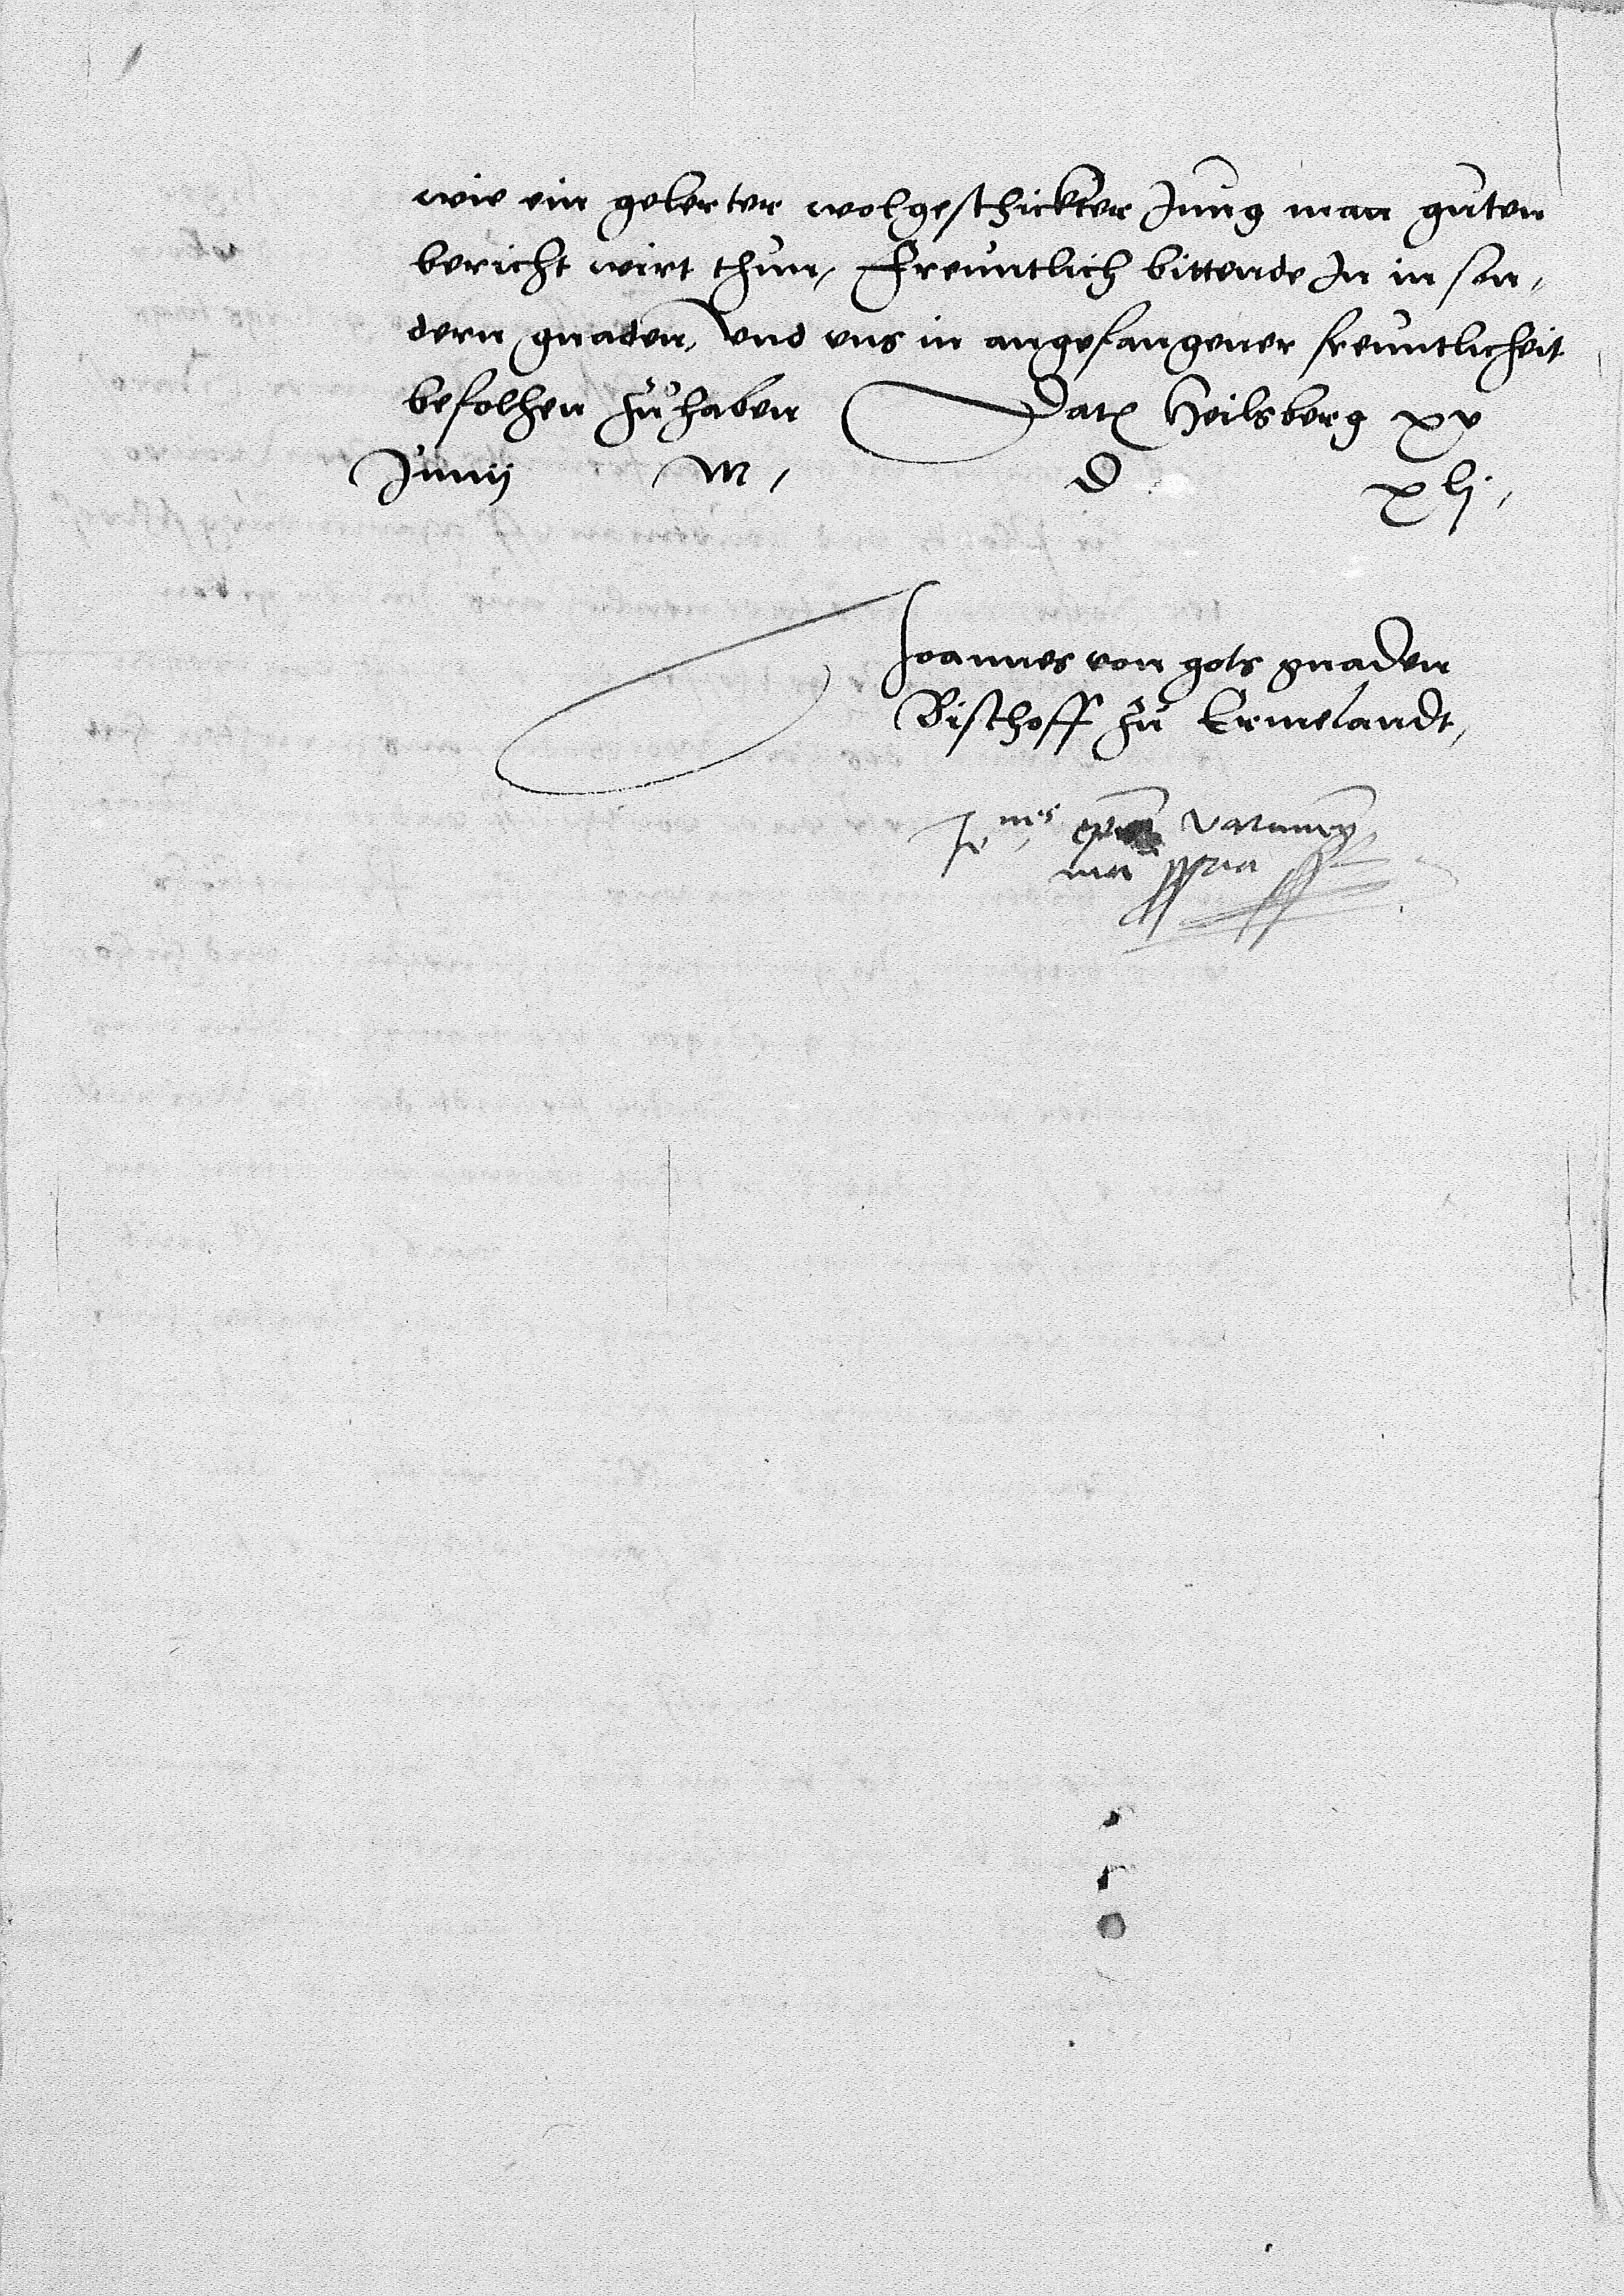 wie ein gelerter wolgeschickter Jung man guten
bericht wirt thun, Freuntlich bittende In in son,
dern gnaden, Vnd vns in angefangener freuntlicheit
befolhen zu haben Dat Heilsberg xv
Junij M, D xlj,
Joannes von gots gnaden
Bischoff zu Ermelandt,
Jo, nes Varmien